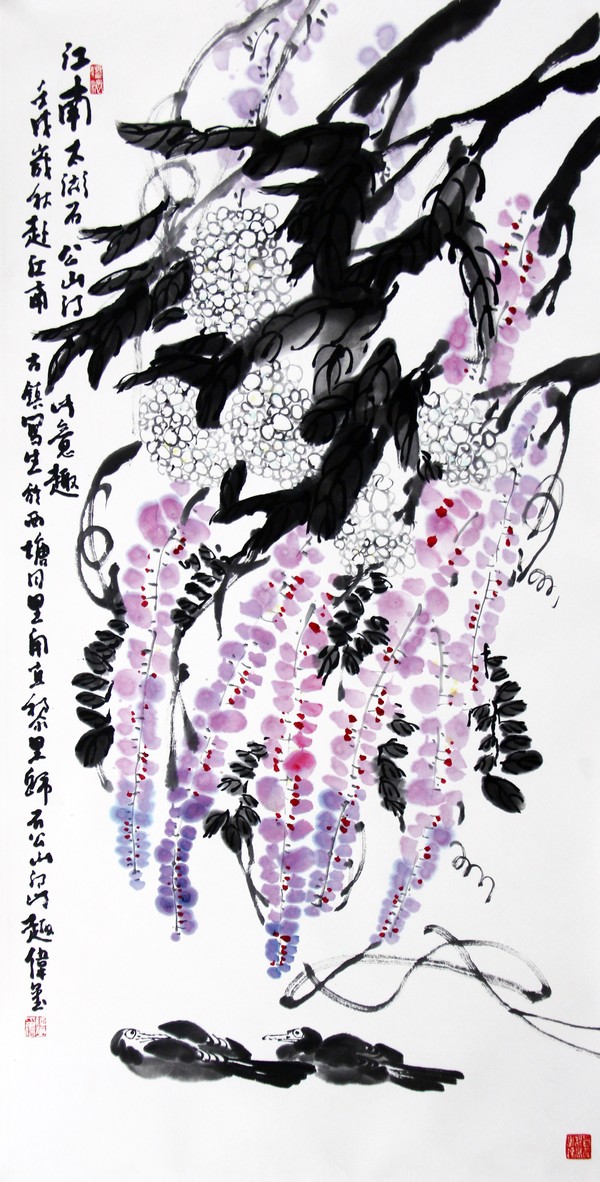 江南太湖石公山得此意趣
歲秋赴江南古鎮寫生於西塘同里甪直黎里歸石公山得此趣偉